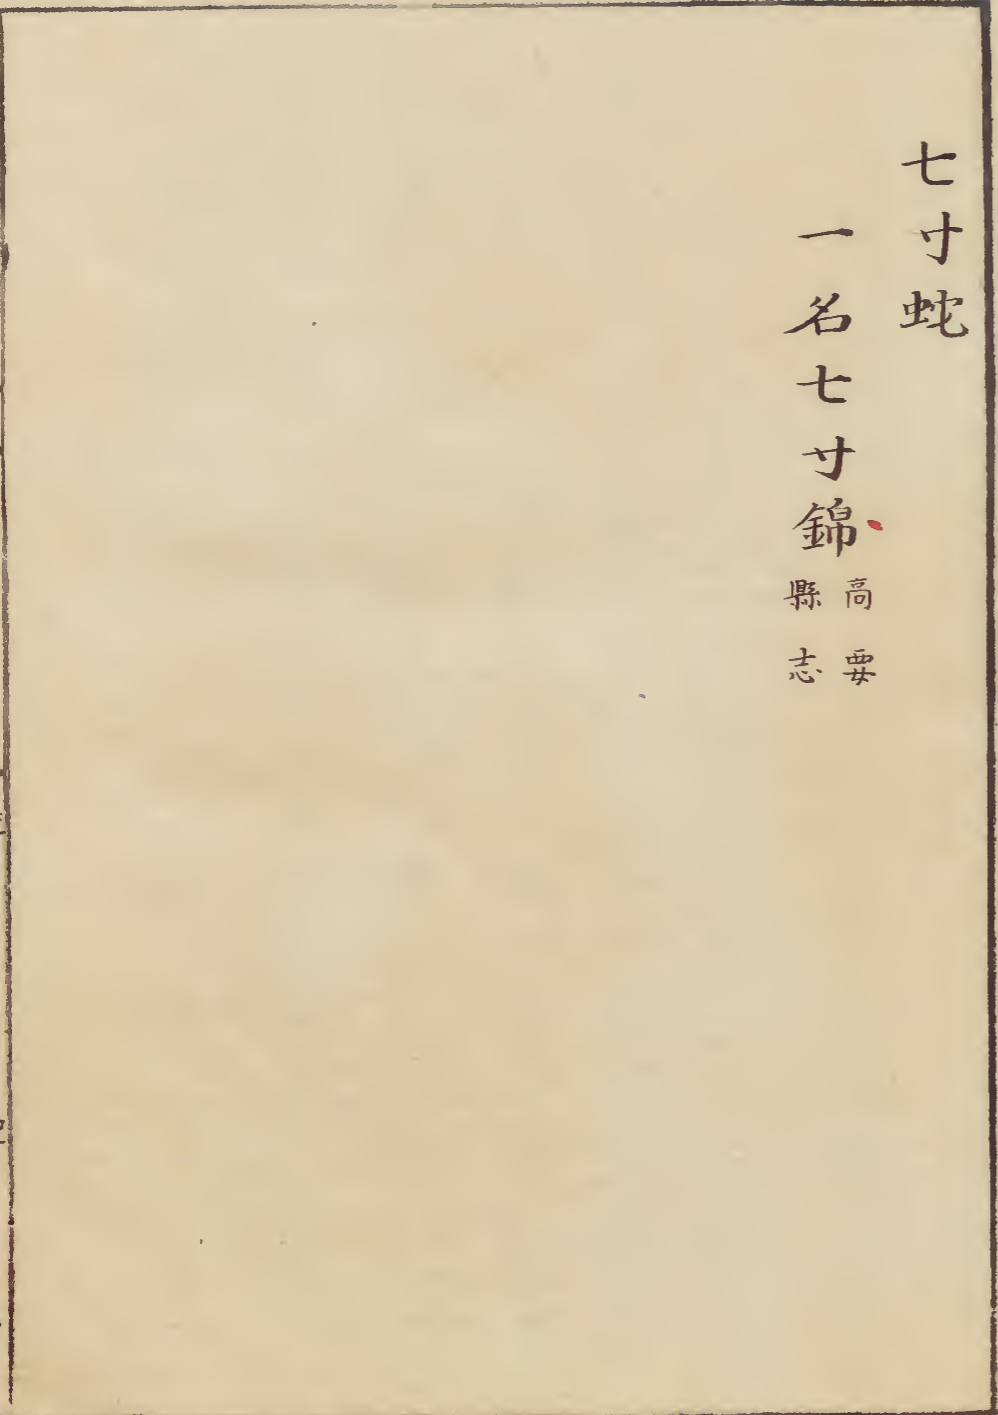 七寸蛇
一名七寸錦
高要
縣志